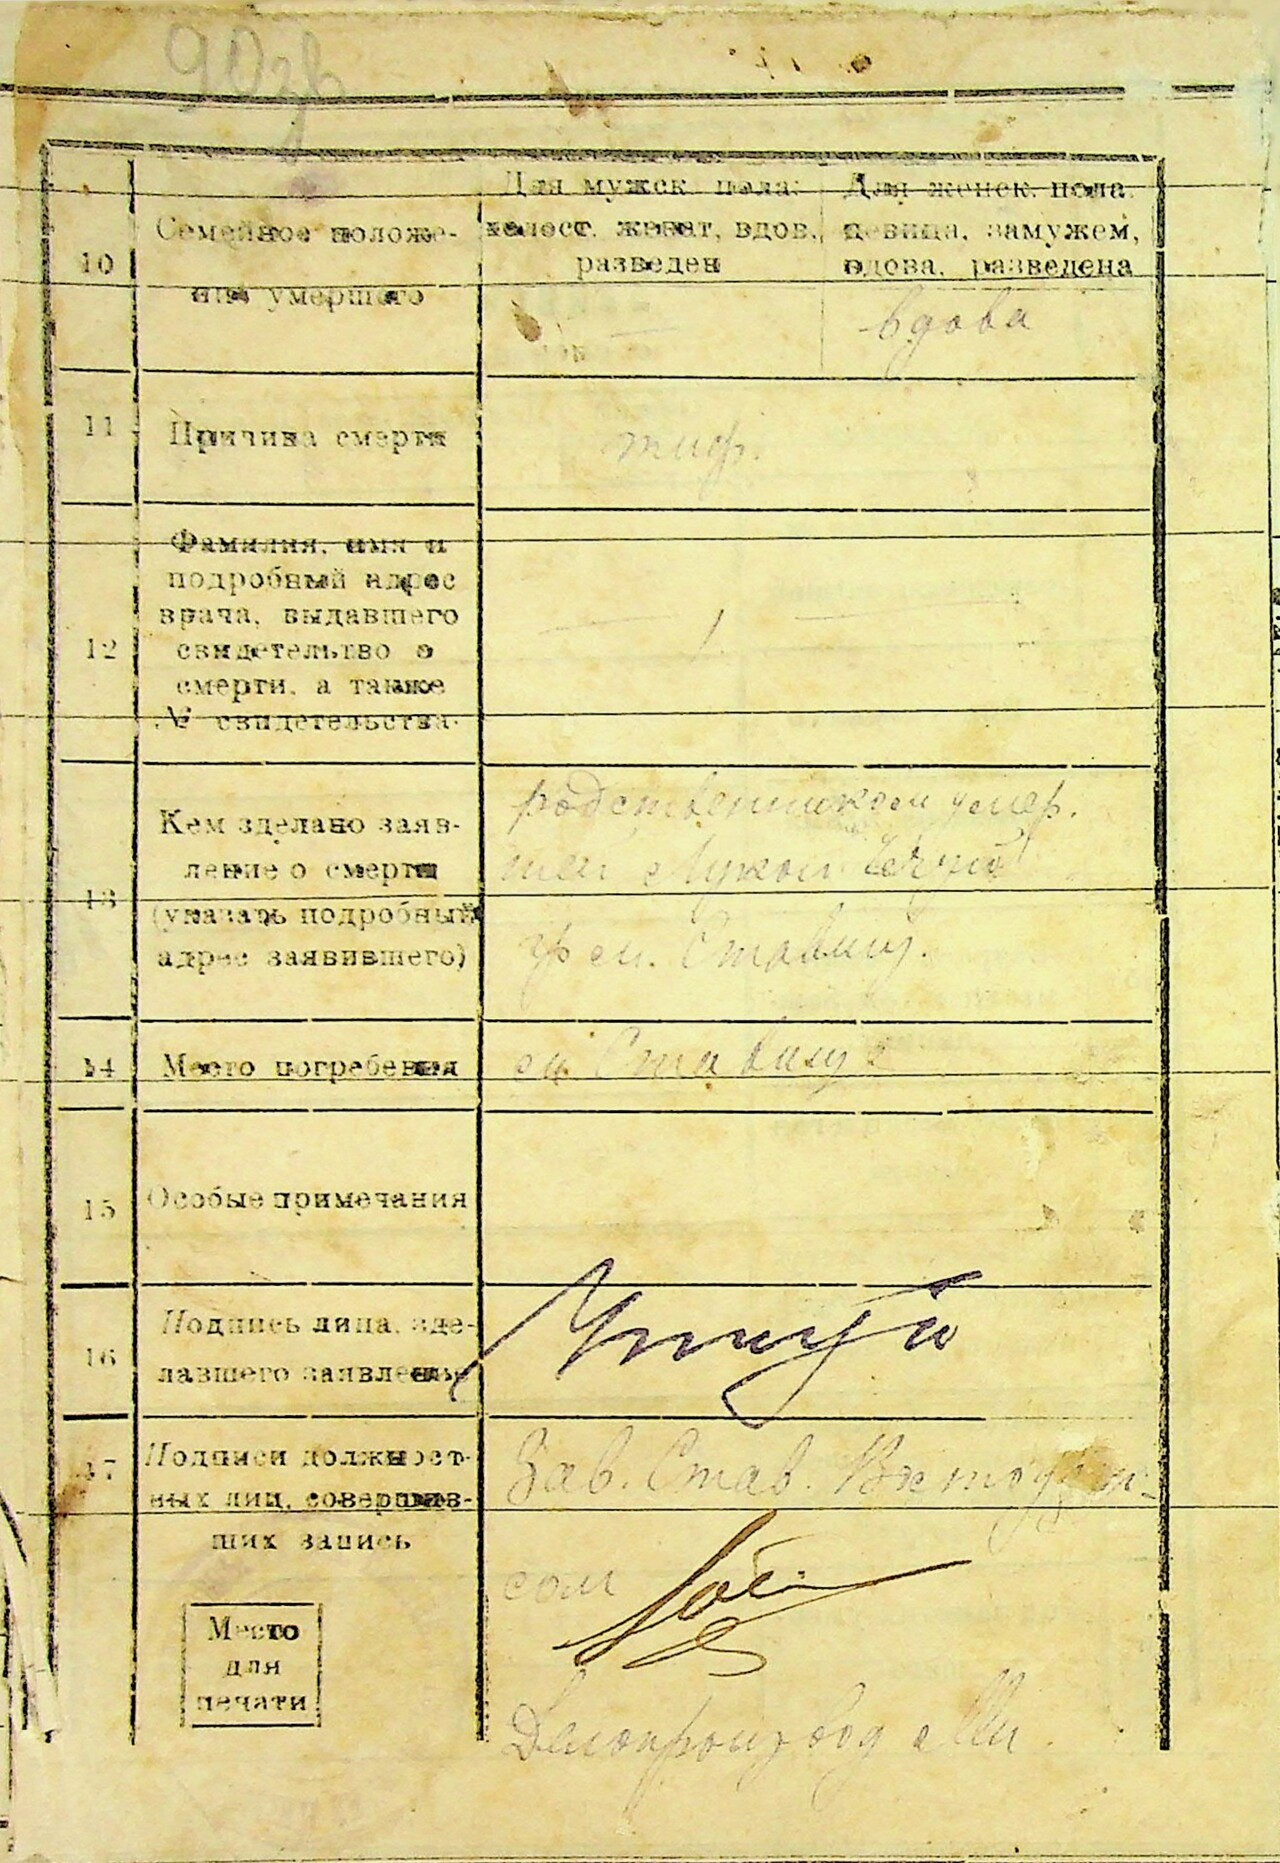 90зв
10
Семейное положе-
ния умершего
Для мужск пола:
холост. женат, вдов.,
разведен
Для женск. пола
девица, замужем,
вдова, разведена
вдова
11
Причина смерти
тиф.
12
Фамилия, имя и
подробный адрес
врача, выдавшего
свидетельство о
смерти, а также
№ свидетельства
13
Кем зделано заяв-
ление о смерти
(указать подробный
адрес заявившего)
родственником умер.
шей Лукой
гр м. Ставищ.
14
Место погребения
м. Ставище
15
Особые примечания
16
Подпись лица, зде-
лавшего заявление
17
Подписи должност-
ных лиц, соверш­ив-
ших запись
Зав. Став.
Место
для
печати
Делопроизвод